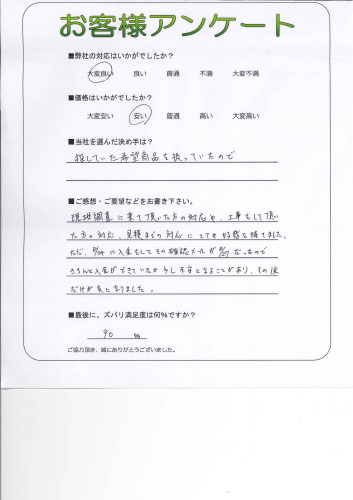 お客様アンケート
■弊社の対応はいかがでしたか？
大変良い 良い 普通 不満 大変不満
■価格はいかがでしたか？
大変安い 安い 普通 高い 大変高い
■当社を選んだ決め手は？
探していた希望商品を扱っていたので
■ご感想・ご要望などをお書き下さい。
現地調査に来て頂いた方の対応や、工事をして頂い
た方の対応、見積までの対応にとても好感を持てました。
ただ、5/24に入金をしてその確認メールが5/27だったので
きちんと入金ができていたか少し不安になることがあり、その点
だけが気になりました。
■最後に、ズバリ満足度は何％ですか？
90 %
ご協力頂き、誠にありがとうございました。